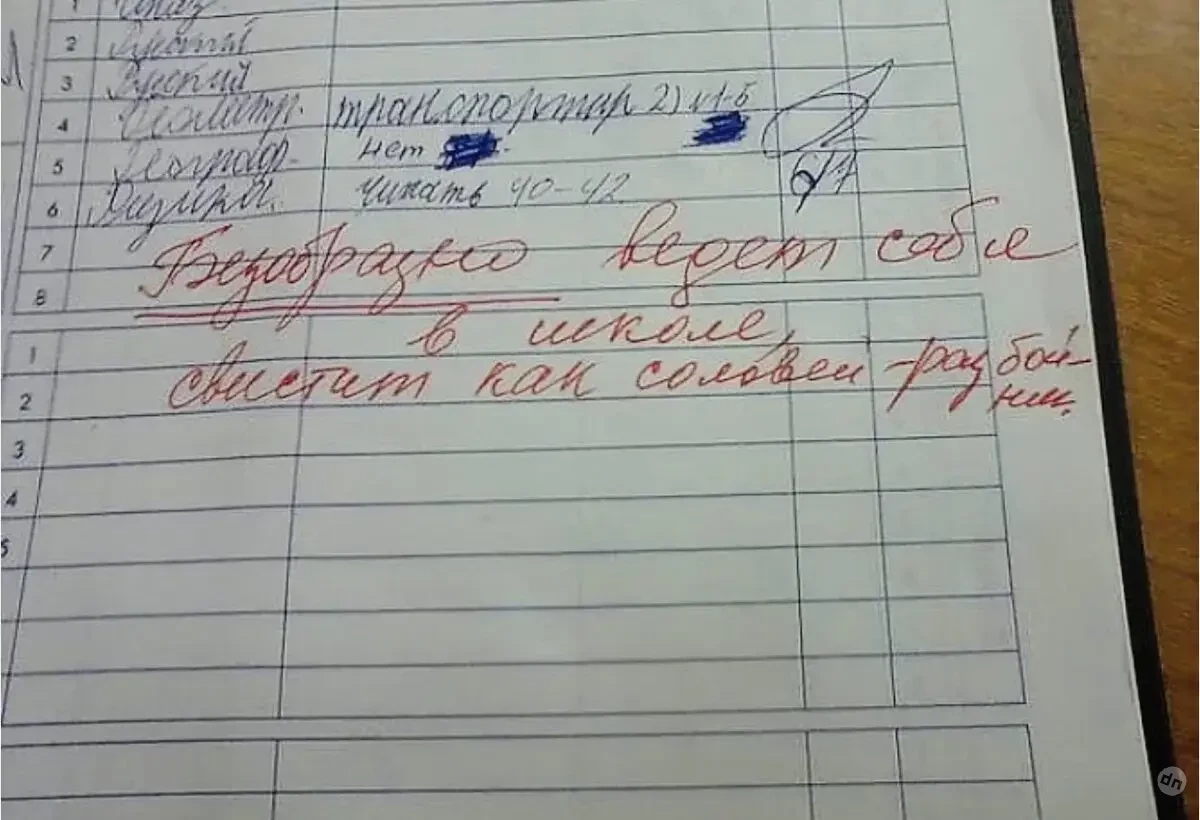 1
2
3 Русский
4 Геометр. транспортир 2) v1-5
5 Географ. нет
6 Физика. Читать 40-42
7 Безобразно ведет себя
8
1 в школе,
2 свистит как соловей -разбой-
ник.
3
4
5
dn